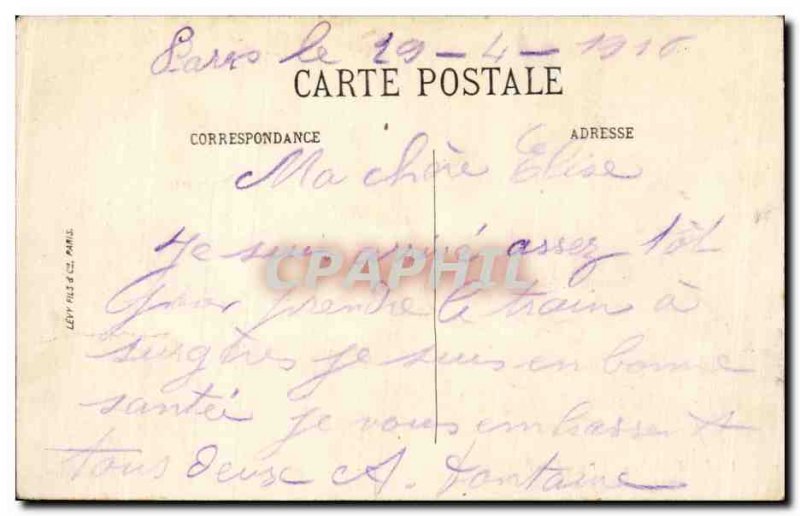 Paris le 29-4-1916
CARTE POSTALE
CORRESPONDANCE
ADRESSE
Ma chère Elise
Je suis arrivé assez tôt
pour prendre le train à
surgères je suis en bonne
santée je vous embrasse
tous deux A. Fontaine
LÉVY FILS & Co, PARIS.
CPAPHIL